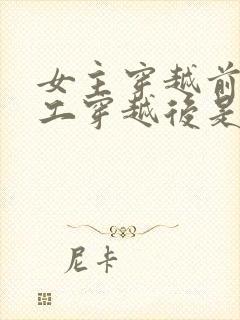 女主穿越前
工穿越後是
尼卡